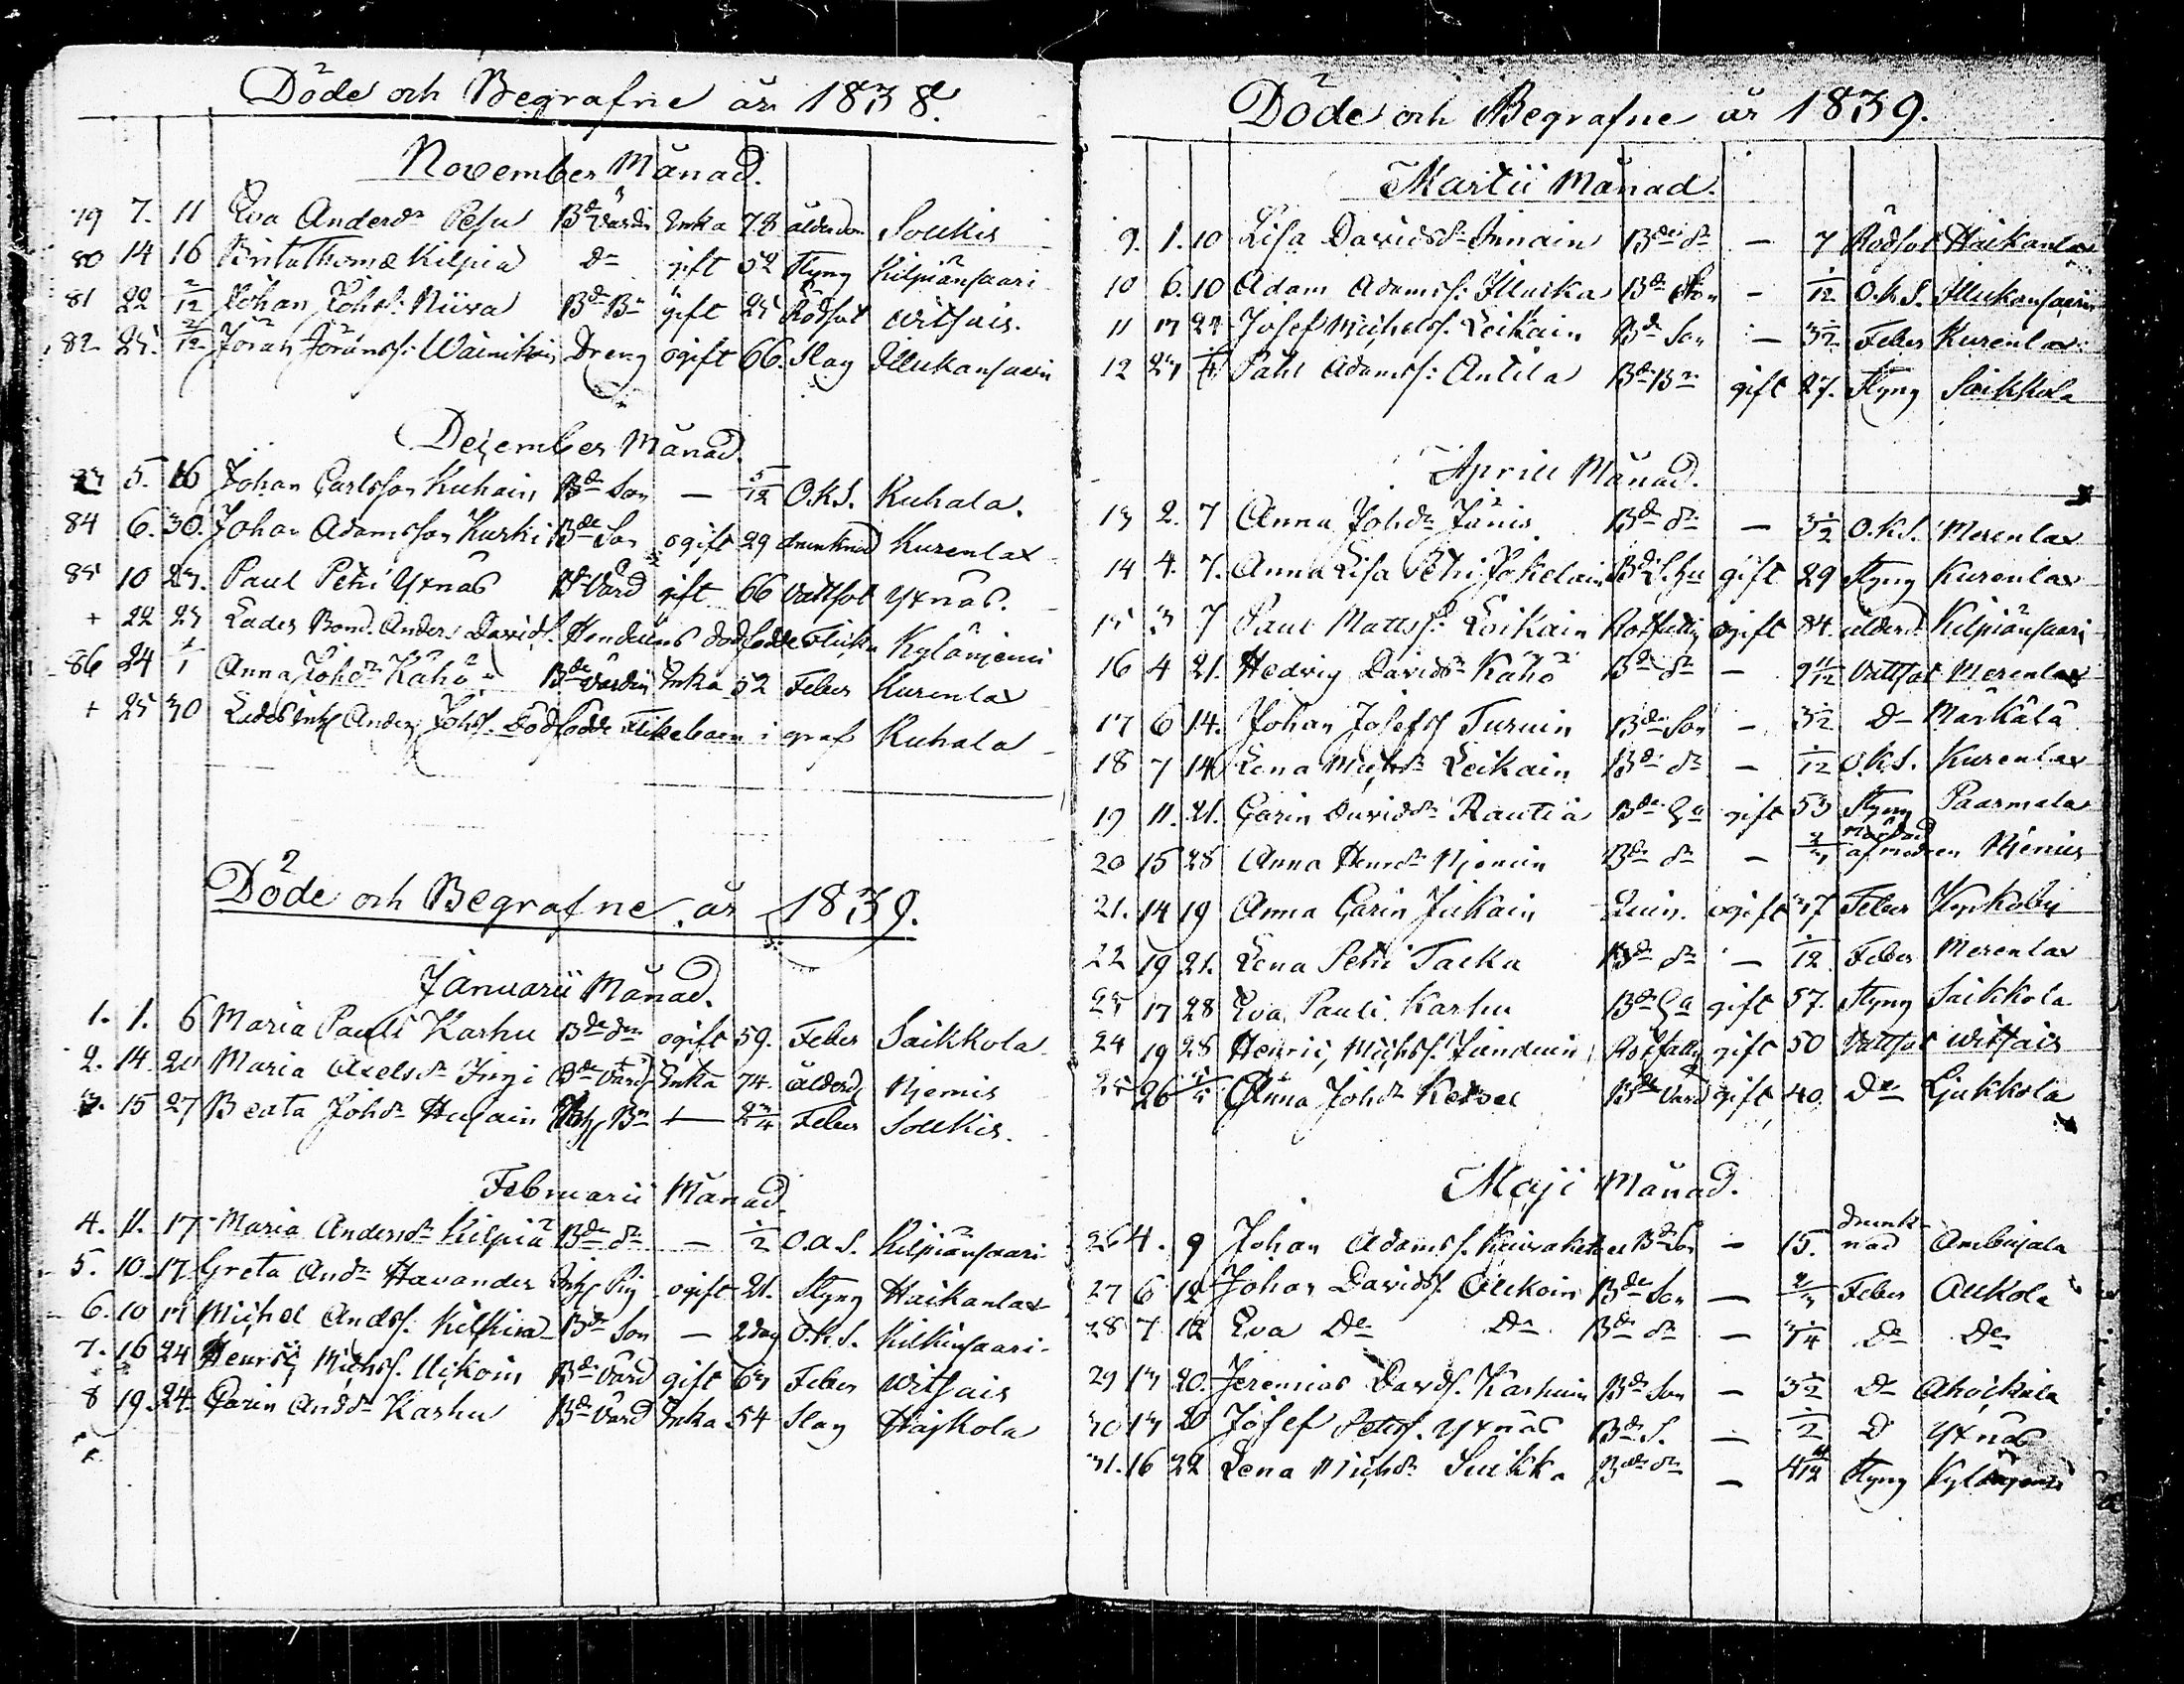 Döde och Begrafne år 1838.
November Månad.
79 7. 11 Eva Andersdr Pesu Bde Värdin Enka 78 ålderdom Soukis
80 14 16 Brita Thomæ Kilpiä Do gift 52 Styng Kilpiänsaari
81 22 2/12 Johan Johss: Niiva Bde Bn gift 25 Rödsot Witsais.
82 25. 2/12 Jöran Jöranss: Wainikain Dreng ogift 66. Slag Illukansaari
December Månad.
5. 16 Johan Carlsson Kuhain Bde Son — 5/12 O.K.S. Kuhala.
84 6. 30. Johan Adamsson Kurki Bde Son ogift 29 drunknad Kurenlax
85 10 23. Paul Petri Yxnäs Bde Värd gift 66 Vattsot Yxnäs.
+ 22 23 Lades Bond. Anders Davids. dödfödde Flicka Kylänjemi
86 24 1/1 Anna Johdr Kähö Bde Värdin Enka 52 Feber Kurenlax
+ 25 30 Lades Inh Anders Johs. Dödfödde Flickebarn i graf Kuhala
Döde och Begrafne år 1839.
Januarii Månad.
1. 1. 6 Maria Pauli Karhu Bde dr ogift 59. Feber Saikkola
2. 14. 20 Maria Axelsdr Bde Värd Enka 74. ålderd Njemis
3. 15 27 Beata Johdr Husain Inh Bn — 2 3/4 Feber Soukis.
Februarii Månad.
4. 11. 17 Maria Andersdr Kilpiä Bde dr — 1/2 O.A.S. Kilpiänsaari
5. 10. 17 Greta Anddr Havander Inh Pig ogift 21. Styng Haikanlax
6. 10 17 Michel Ands. Kilkira Bde Son — 2 dag O.K.S. Kilkinsaari
7. 16 24 Henric Michss. Uckoin Bde Värd gift 63 Feber Witsais
8 19. 24. Carin Anddr Karhu Bde Värd Enka 54 Slag Hajkola
Döde och Begrafne år 1839.
Martii Månad.
9. 1. 10 Lisa Davidsdr Innain Bde dr — 7 Rödsot Haikanlax
10 6. 10 Adam Adamss: Illuika Bde Son — 1/12 O.K.S. Illukansaari
11 17 24 Josef Michelss. Leikain Bde Son — 3 1/2 Feber Kurenlax
12 23 Påhl Adamss: Antila Bde Bn gift 27. Styng Saikkola
Aprill Månad.
13 2. 7 Anna Johdr Jänis Bde dr — 3 1/2 O.K.S. Merenlax
14 4. 7. Anna Lisa Petri Jokelain gift 29 Styng Kurenlax
15 3 7 Paul Mattss. Loikain Rotfattig ogift 84. ålderd. Kilpiänsaari
16 4 21. Hedvig Davidsdr Kähö Bde dr — 9 11/12 Vattsot Merenlax
17 6 14. Johan Josefs Turuin Bde Son — 3 1/2 Do Märkälä
18 7 14 Lena Michdr Leikain Bde dr — 1/12 O.K.S. Kurenlax
19 11. 21. Carin Davidsdr Rautia Bde Ga gift 53 Styng Paarmala
20 15 28 Anna Henrdr Njemin Bde dr — mördad af modren Njemis
21. 14 19 Anna Carin Jukain ogift 37 Feber Kyrkoby
22 19 21. Lena Petri Tacka Bde dr — 1/12 Feber Merenlax
23 17 28 Eva Pauli Karhu Bde Ga gift 57. Styng Saikkola
24 19 28 Henric Michss. Rotfattig gift 50 Vattsot Witsais
25 26 Anna Johdr Bde Värd gift 40. Do Ljukkola
Maji Månad.
26 4. 9 Johan Adamss. Bde Son — 15. drunknad Ambujala
27 6 12 Johan Davids. Aukoin Bde Son — 2/3 Feber Aukola
28 7 12 Eva Do Do Bde dr — 3 1/4 Do Do
29 13 20. Jeremias Davds. Karhuin Bde Son — 3 1/2 Do Ahokala
30 13 20 Josef Petters. Yxnäs Bde S. — 1/2 D Yxnäs
31. 16 22 Lena Michdr Suikka Bde dr — 4 11/12 Styng Kylänjemi